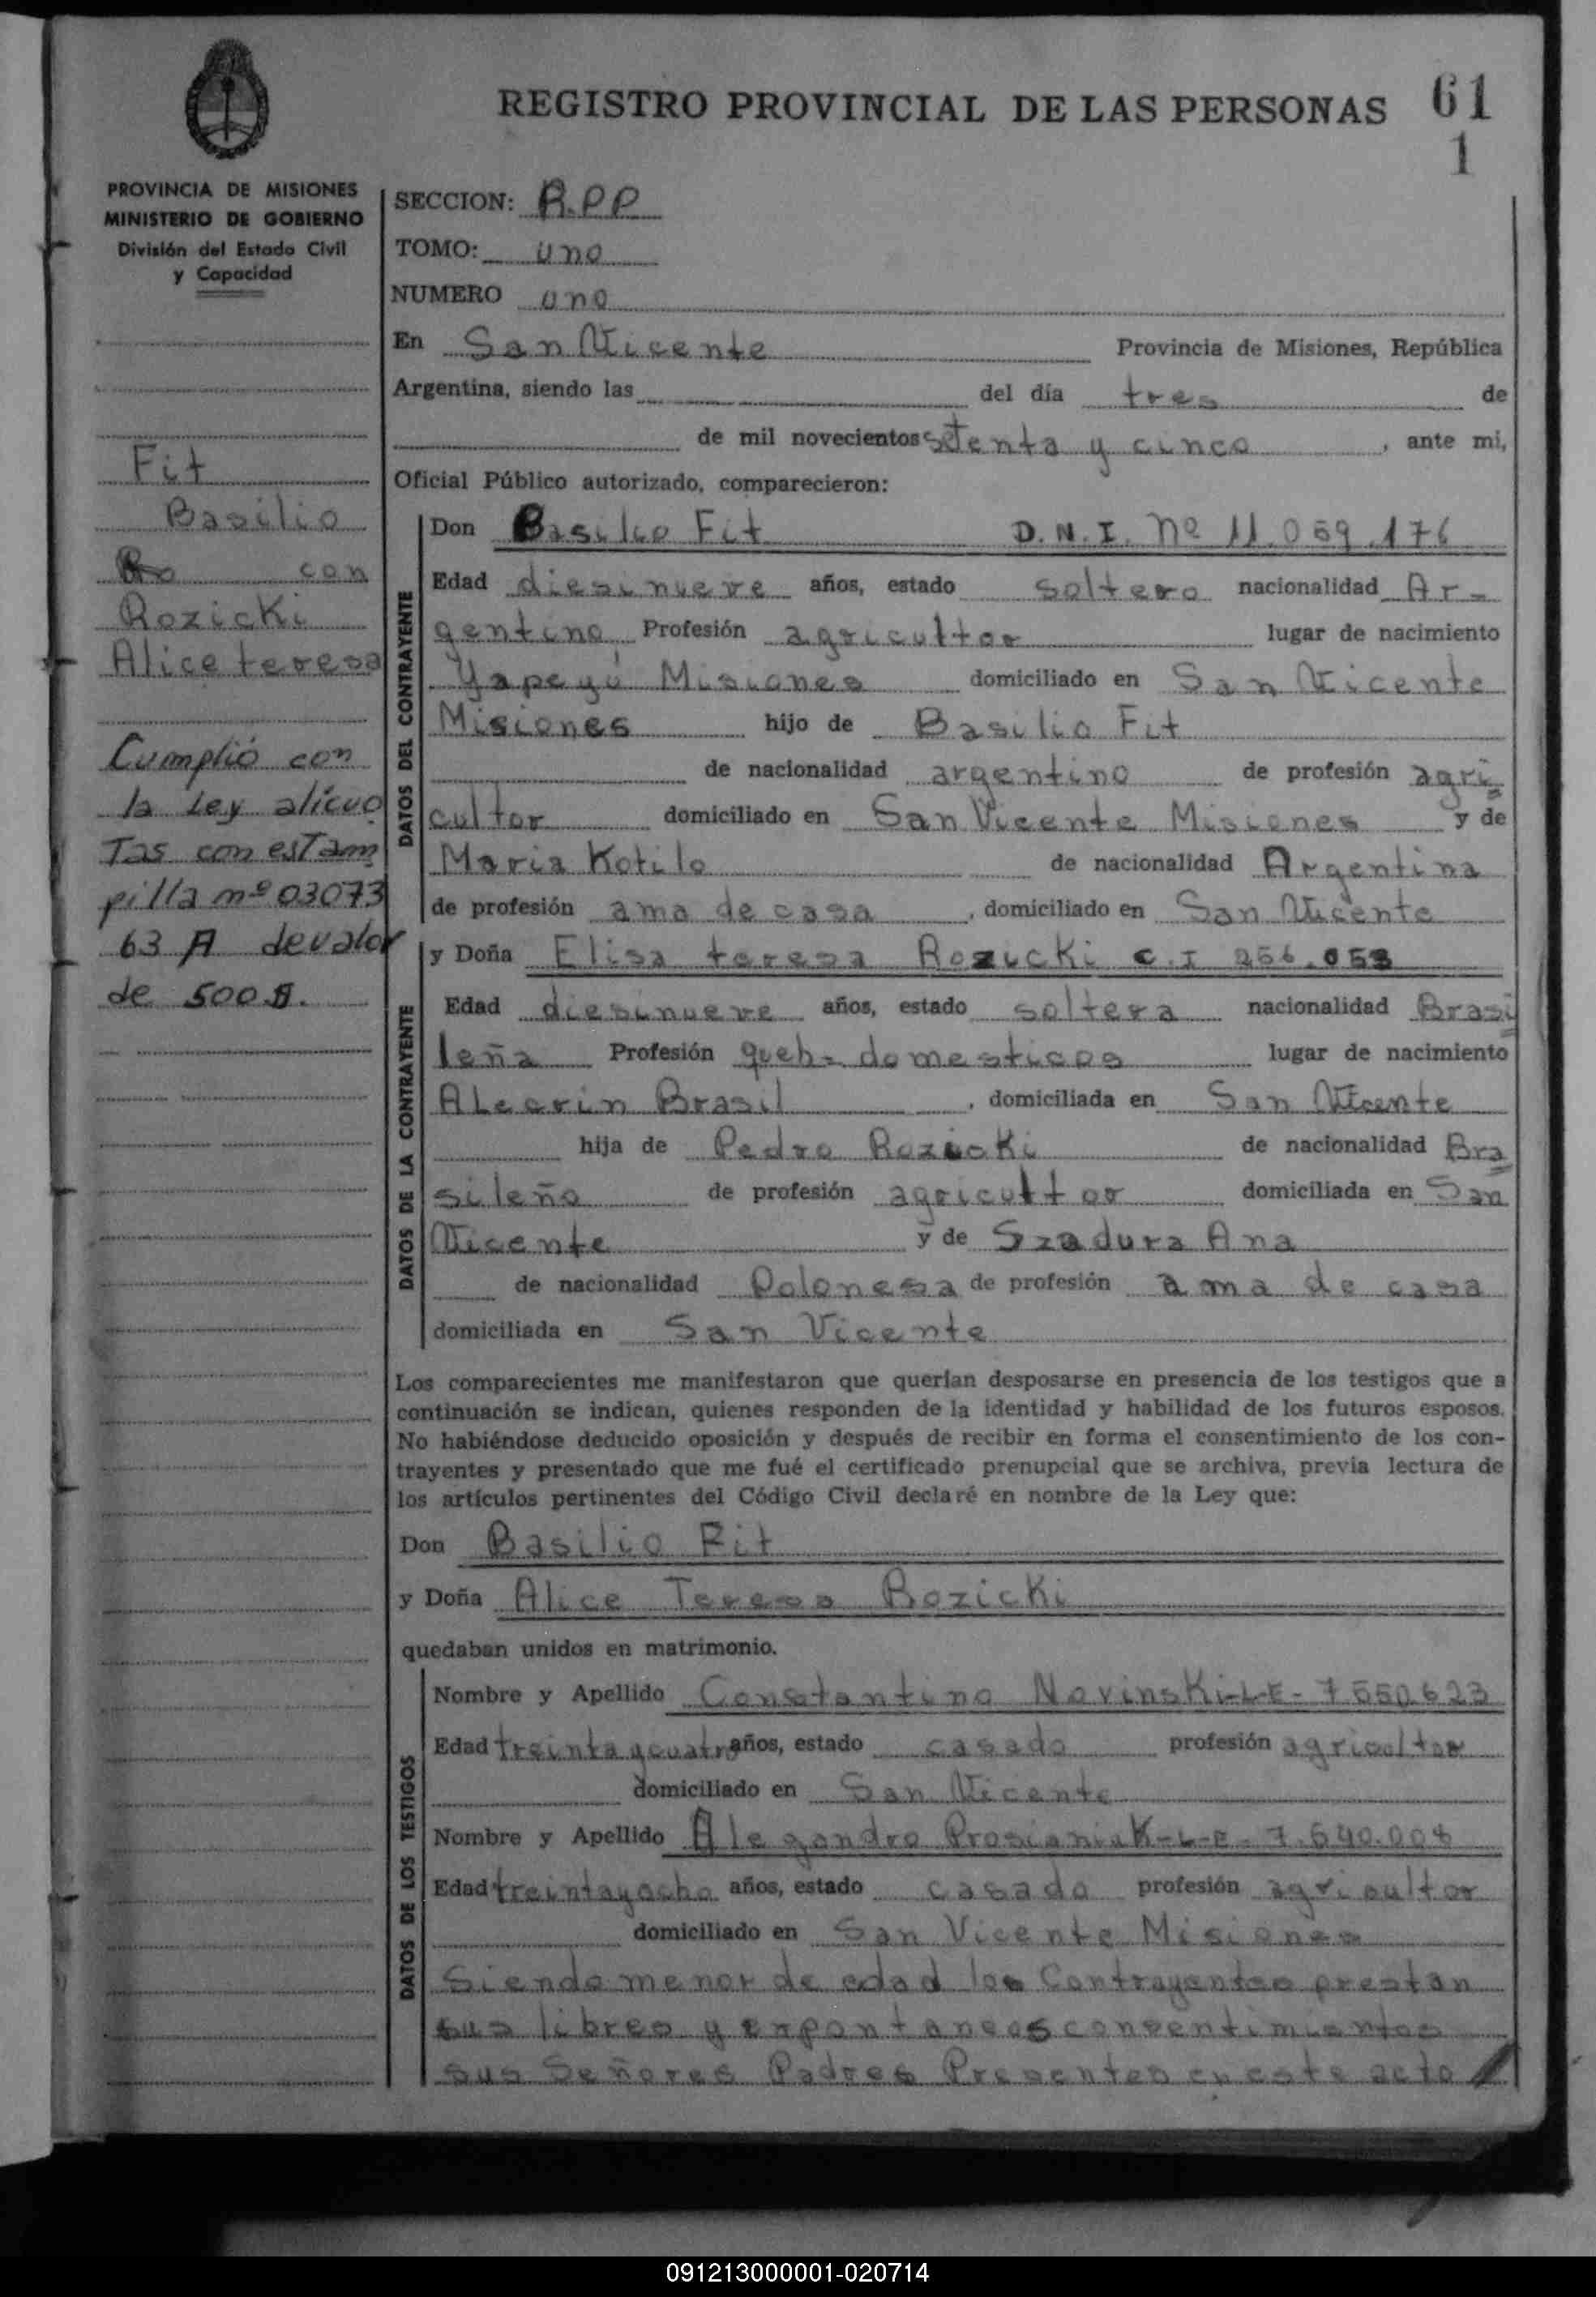 REGISTRO PROVINCIAL DE LAS PERSONAS 61
1
PROVINCIA DE MISIONES
MINISTERIO DE GOBIERNO
División del Estado Civil
y Capacidad
Fit
Basilio
con
Rozicki
Alice teresa
Cumplió con
la Ley alicuo
Tas con estam
pilla nº 03073
63 A de valor
de 500 $.
SECCION: R.P.P
TOMO: uno
NUMERO uno
En San Vicente Provincia de Misiones, República
Argentina, siendo las del día tres de
de mil novecientos setenta y cinco, ante mi,
Oficial Público autorizado, comparecieron:
DATOS DEL CONTRAYENTE
Don Basilio Fit D.N.I. Nº 11.059.176
Edad diesinueve años, estado soltero nacionalidad Ar-
gentino Profesión agricultor lugar de nacimiento
Yapeyú Misiones domiciliado en San Vicente
Misiones hijo de Basilio Fit
de nacionalidad argentino de profesión agri
cultor domiciliado en San Vicente Misiones y de
Maria Kotilo de nacionalidad Argentina
de profesión ama de casa, domiciliado en San Vicente
DATOS DE LA CONTRAYENTE
y Doña Elisa teresa Rozicki C.I 256.053
Edad diesinueve años, estado soltera nacionalidad Brasi
leña Profesión queh= domesticos lugar de nacimiento
Alecrin Brasil, domiciliada en San Vicente
hija de Pedro Rozicki de nacionalidad Bra
sileño de profesión agricultor domiciliada en San
Vicente y de Szadura Ana
de nacionalidad Polonesa de profesión ama de casa
domiciliada en San Vicente
Los comparecientes me manifestaron que querían desposarse en presencia de los testigos que a
continuación se indican, quienes responden de la identidad y habilidad de los futuros esposos.
No habiéndose deducido oposición y después de recibir en forma el consentimiento de los con-
trayentes y presentado que me fué el certificado prenupcial que se archiva, previa lectura de
los artículos pertinentes del Código Civil declaré en nombre de la Ley que:
Don Basilio Fit
y Doña Alice Teresa Rozicki
quedaban unidos en matrimonio.
DATOS DE LOS TESTIGOS
Nombre y Apellido Constantino Novinski-L-E- 7550623
Edad treinta y cuatro años, estado casado profesión agricultor
domiciliado en San Vicente
Nombre y Apellido Alegandro Prosianiuk-L-E- 7.640.008
Edad treinta y ocho años, estado casado profesión agricultor
domiciliado en San Vicente Misiones
Siendo menor de edad los Contrayentes prestan
sus libres y expontaneos consentimientos
sus Señores Padres Presentes en este acto
091213000001-020714